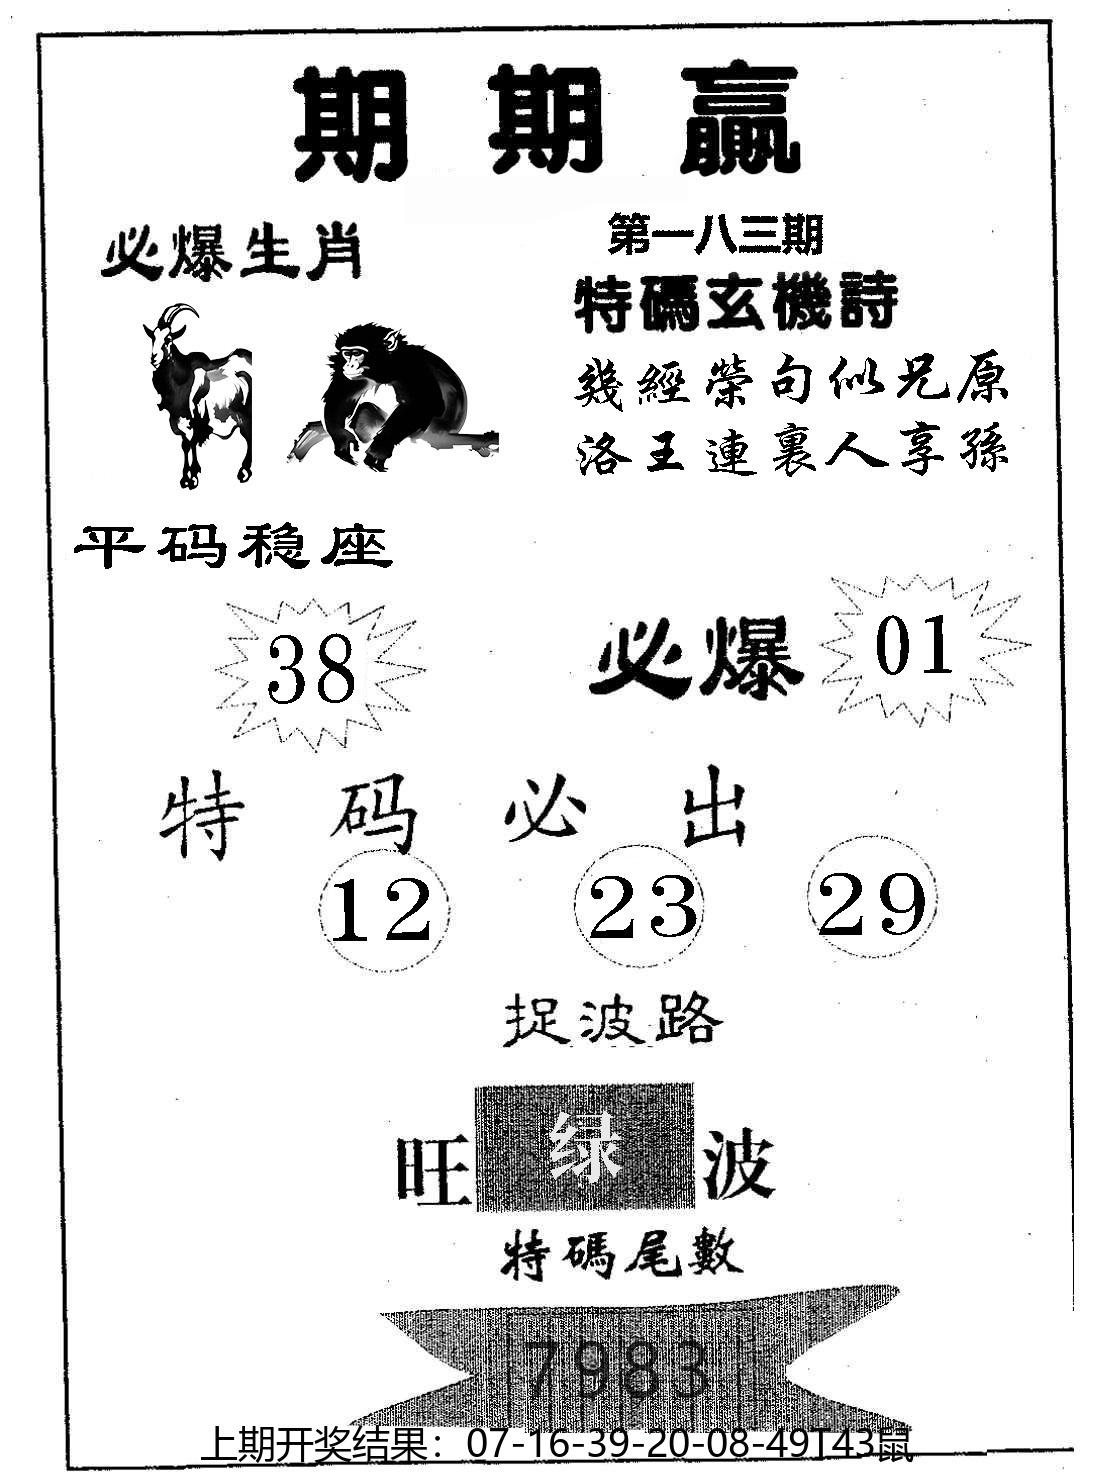 期期赢
必爆生肖
第一八三期
特碼玄機詩
幾經榮句似兄原
洛王連裏人享孫
平码稳座
38
必爆 01
特码必出
12 23 29
捉波路
旺 绿 波
特碼尾數
7983
上期开奖结果：07-16-39-20-08-49T43鼠